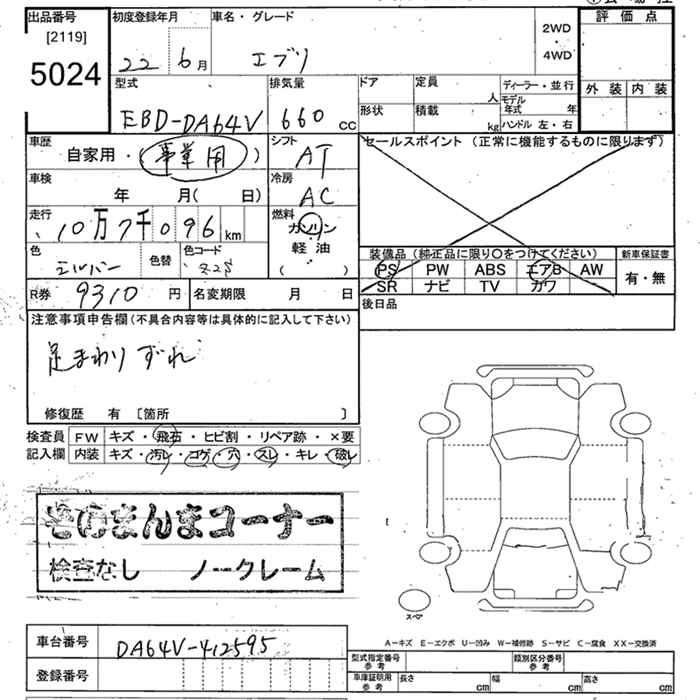 出品番号
[2119]
5024
初度登録年月
22 6月
車名・グレード
エブリ
2WD
・
4WD
評価点
外装 内装
型式
EBD-DA64V
排気量
660 cc
ドア
定員 人
形状
積載 kg
ディーラー・並行
モデル年式 年
ハンドル 左・右
車歴
自家用・(事業用)
シフト
AT
セールスポイント (正常に機能するものに限ります)
車検
年 月(日)
冷房
AC
走行
10万7千096km
燃料
ガソリン
軽油
( )
色
シルバー
色替
色コード
Z2S
装備品 (純正品に限り○をつけてください)
PS PW ABS エアB AW
SR ナビ TV カワ
新車保証書
有・無
R券 9310円
名変期限 月 日
後日品
注意事項申告欄(不具合内容等は具体的に記入して下さい)
足まわりずれ
修復歴 有 [箇所 ]
検査員記入欄
FW キズ・飛石・ヒビ割・リペア跡・×要
内装 キズ・汚レ・コゲ・穴・スレ・キレ・破レ
そのまんまコーナー
検査なし ノークレーム
スペア
A－キズ E－エクボ U－凹み W－補修跡 S－サビ C－腐食 XX－交換済
車台番号
DA64V-412595
登録番号
型式指定番号
参考
類別区分番号
参考
車庫証明用
参考
長さ cm
幅 cm
高さ cm